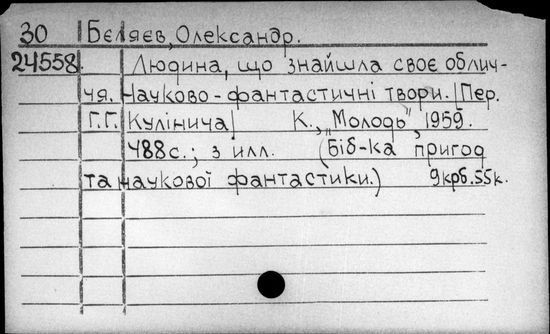 30 Бєляєв, Олександр.
24558 Людина, що знайшла своє облич-
чя. Науково-фантастичні твори. |Пер.
Г.Г. Кулінича| К., "Молодь", 1959.
488 с.; з илл. (Біб-ка пригод
та наукової фантастики.) 9крб.55к.